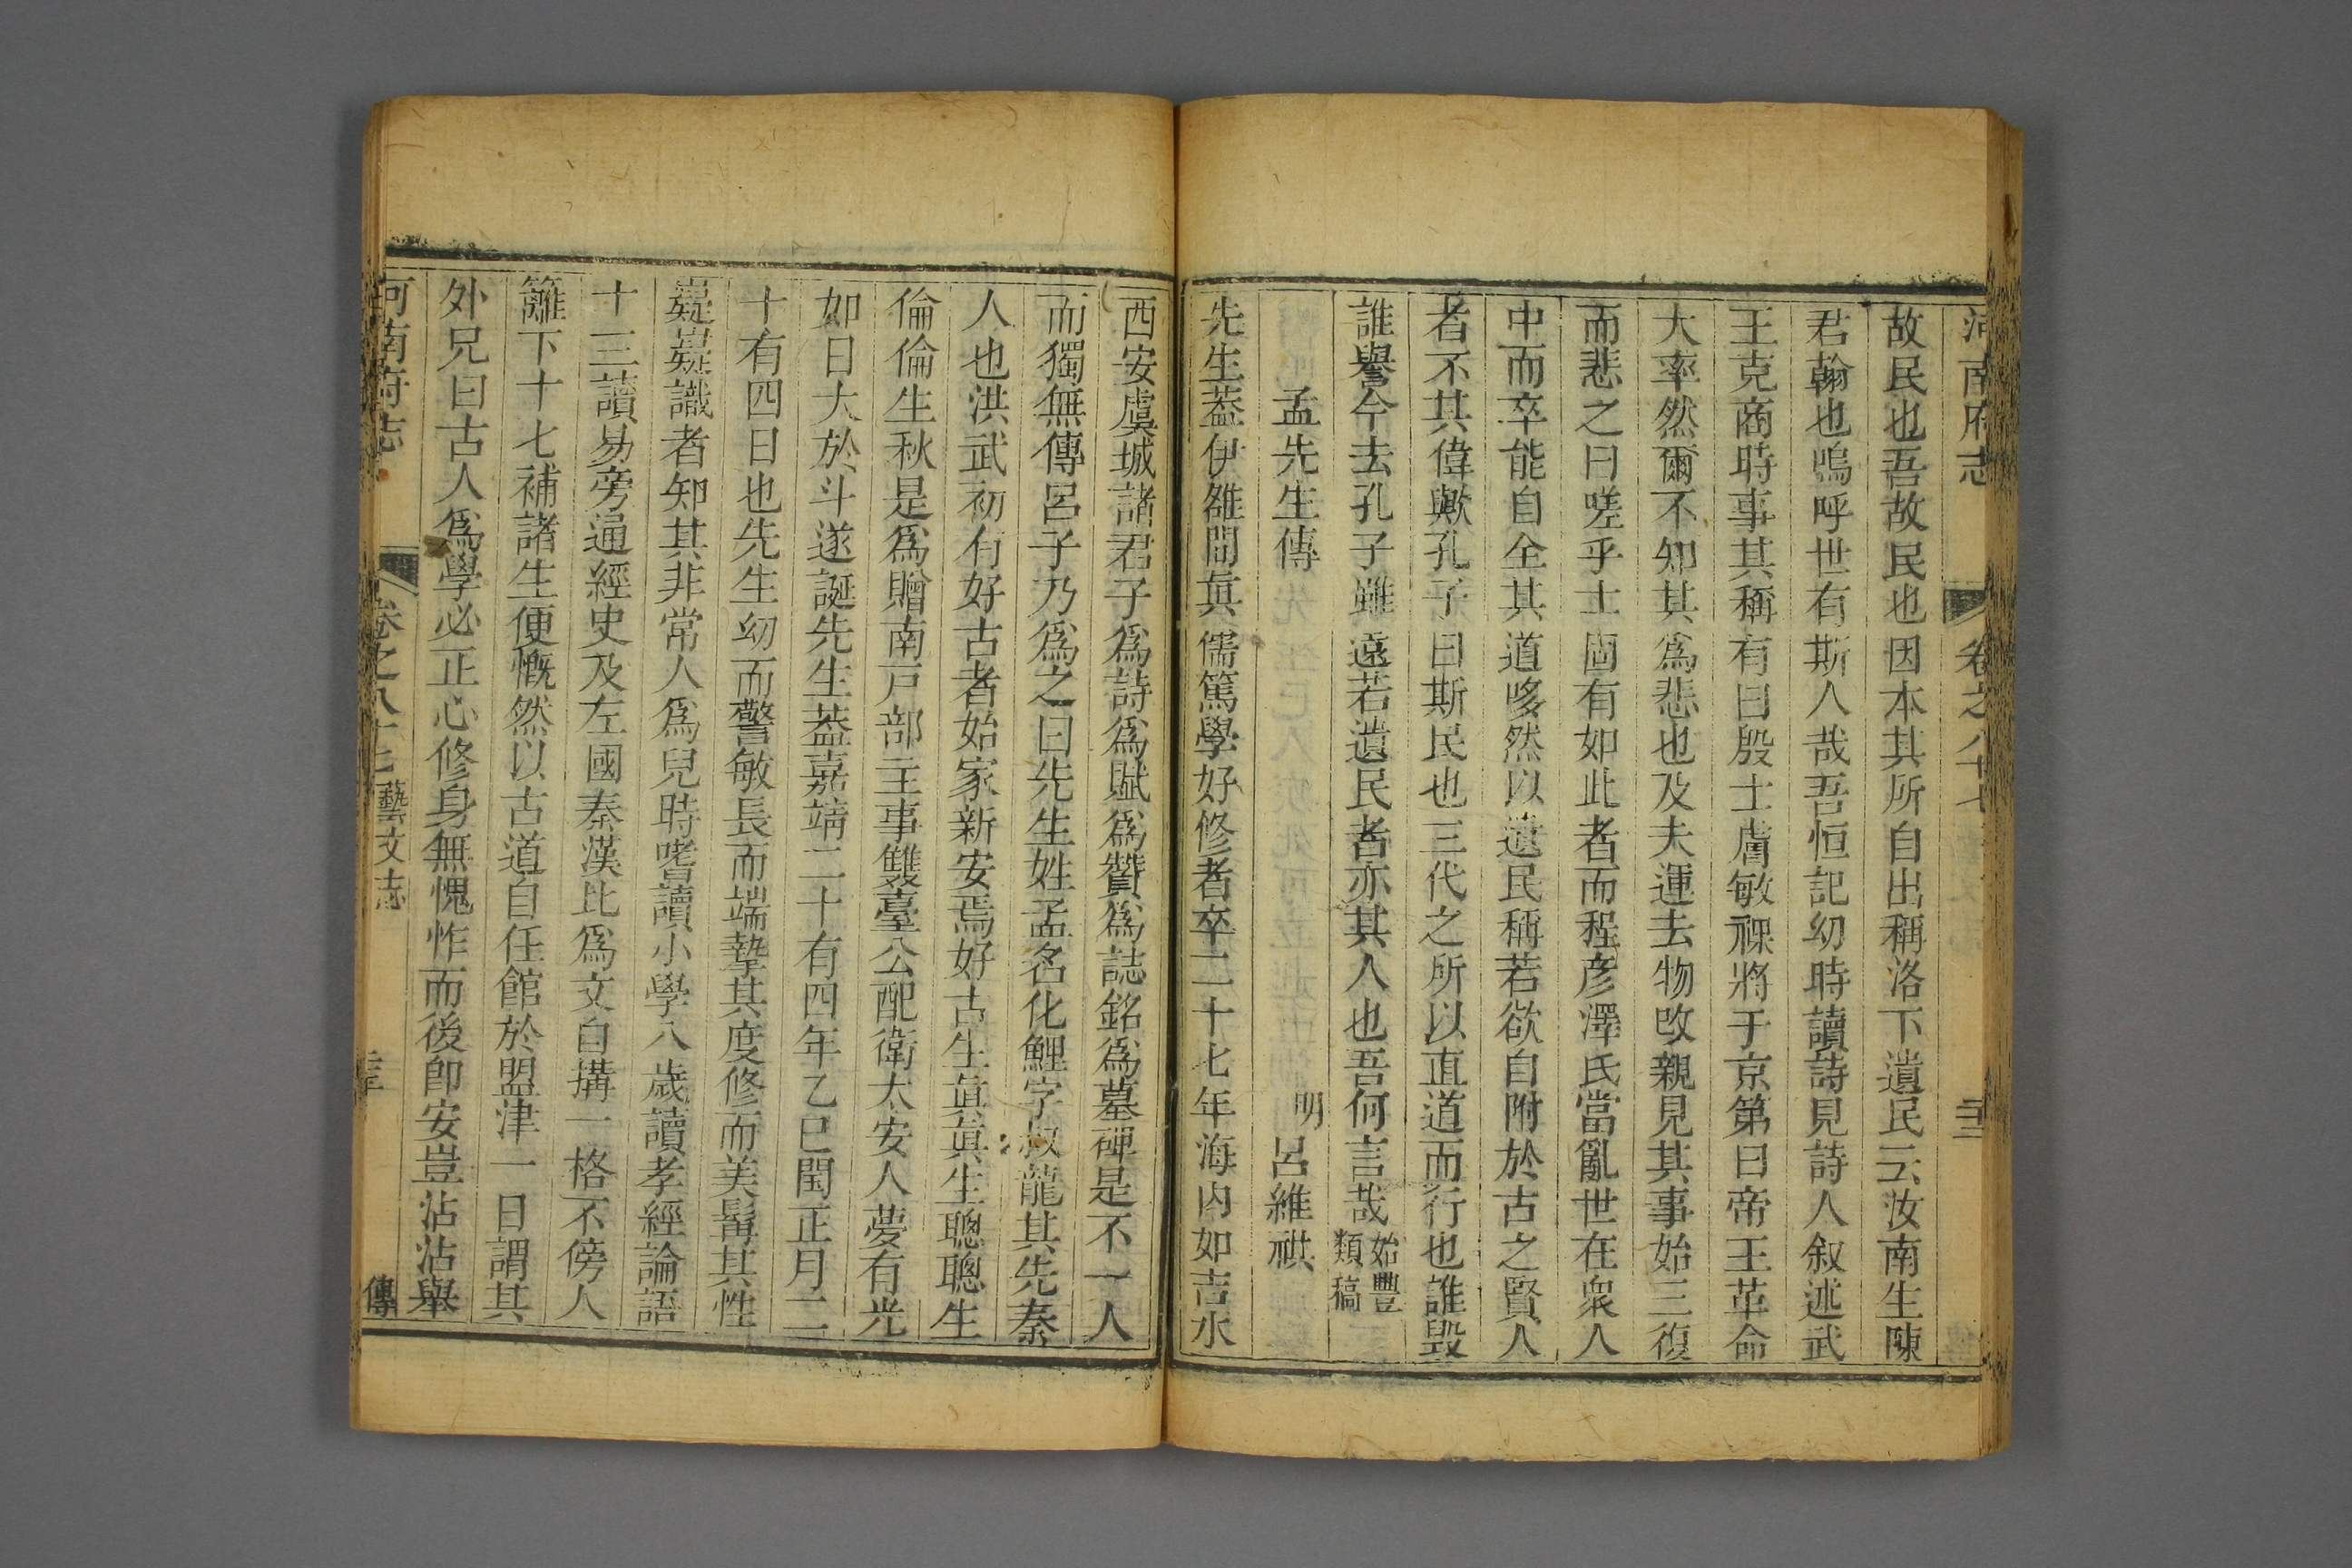 河南府志 卷之八十七 二十二
故民也吾故民也因本其所自出稱洛下遺民云汝南生陳
君翰也嗚呼世有斯人哉吾恒記幼時讀詩見詩人叙述武
王克商時事其稱有曰殷士膚敏祼將于京第曰帝王革命
大率然爾不知其爲悲也及夫運去物改親見其事始三復
而悲之曰嗟乎士固有如此者而程彦澤氏當亂世在衆人
中而卒能自全其道哆然以遺民稱若欲自附於古之賢人
者不其偉歟孔子曰斯民也三代之所以直道而行也誰毀
誰譽今去孔子雖遠若遺民者亦其人也吾何言哉始豐類稿
孟先生傳 明呂維祺
先生葢伊雒間眞儒篤學好修者卒二十七年海内如吉水
西安虞城諸君子爲詩爲賦爲贊爲誌銘爲墓碑是不一人
而獨無傳呂子乃爲之曰先生姓孟名化鯉字叔龍其先秦
人也洪武初有好古者始家新安焉好古生眞眞生聰聰生
倫倫生秋是爲贈南戸部主事雙臺公配衛太安人夢有光
如日大於斗遂誕先生葢嘉靖二十有四年乙巳閏正月二
十有四日也先生幼而警敏長而端摯其度修而美髯其性
嶷嶷識者知其非常人爲兒時嗜讀小學八歲讀孝經論語
十三讀易旁通經史及左國秦漢比爲文自搆一格不傍人
籬下十七補諸生便慨然以古道自任館於盟津一日謂其
外兄曰古人爲學必正心修身無愧怍而後卽安豈沾沾舉
河南府志 卷之八十七 藝文志 二十三 傳